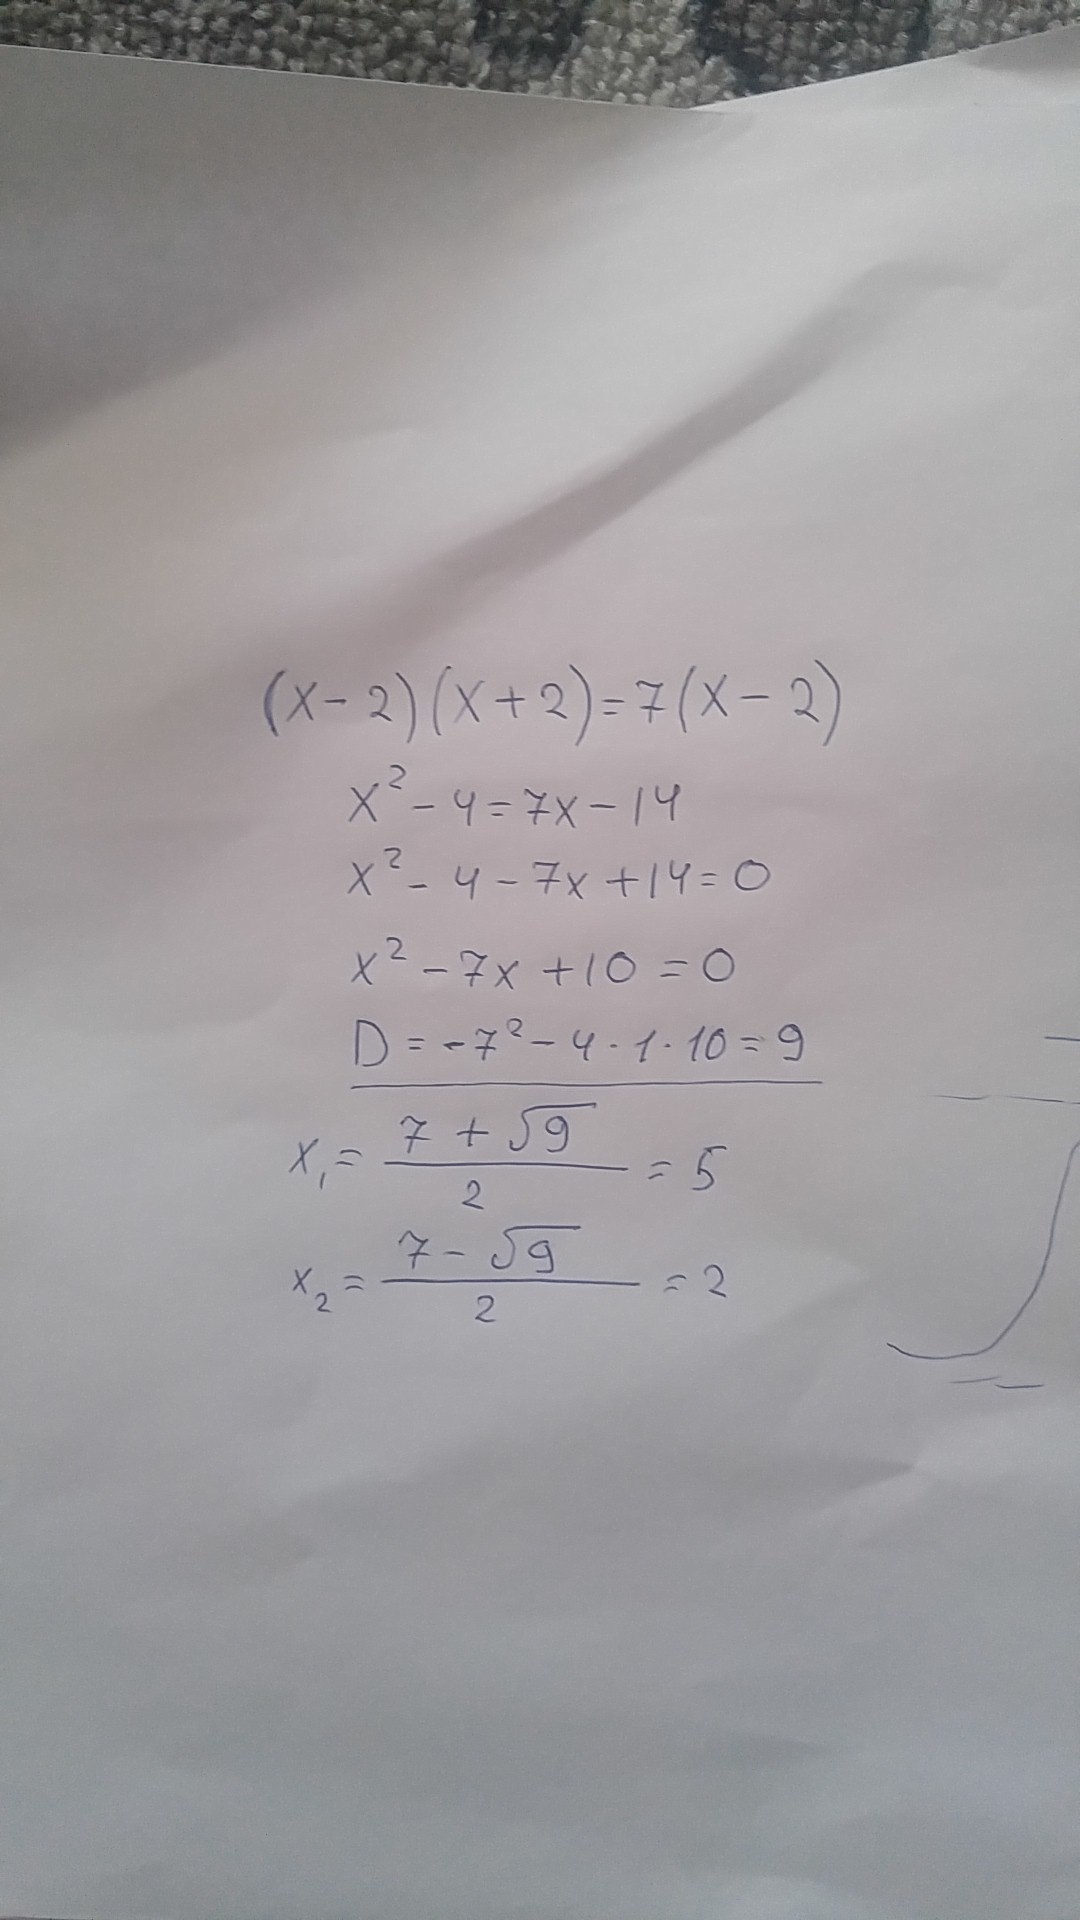 (x-2)(x+2)=7(x-2)
x²-4=7x-14
x²-4-7x+14=0
x²-7x+10=0
D=-7²-4·1·10=9
x₁= (7+√9)/2 =5
x₂= (7-√9)/2 =2